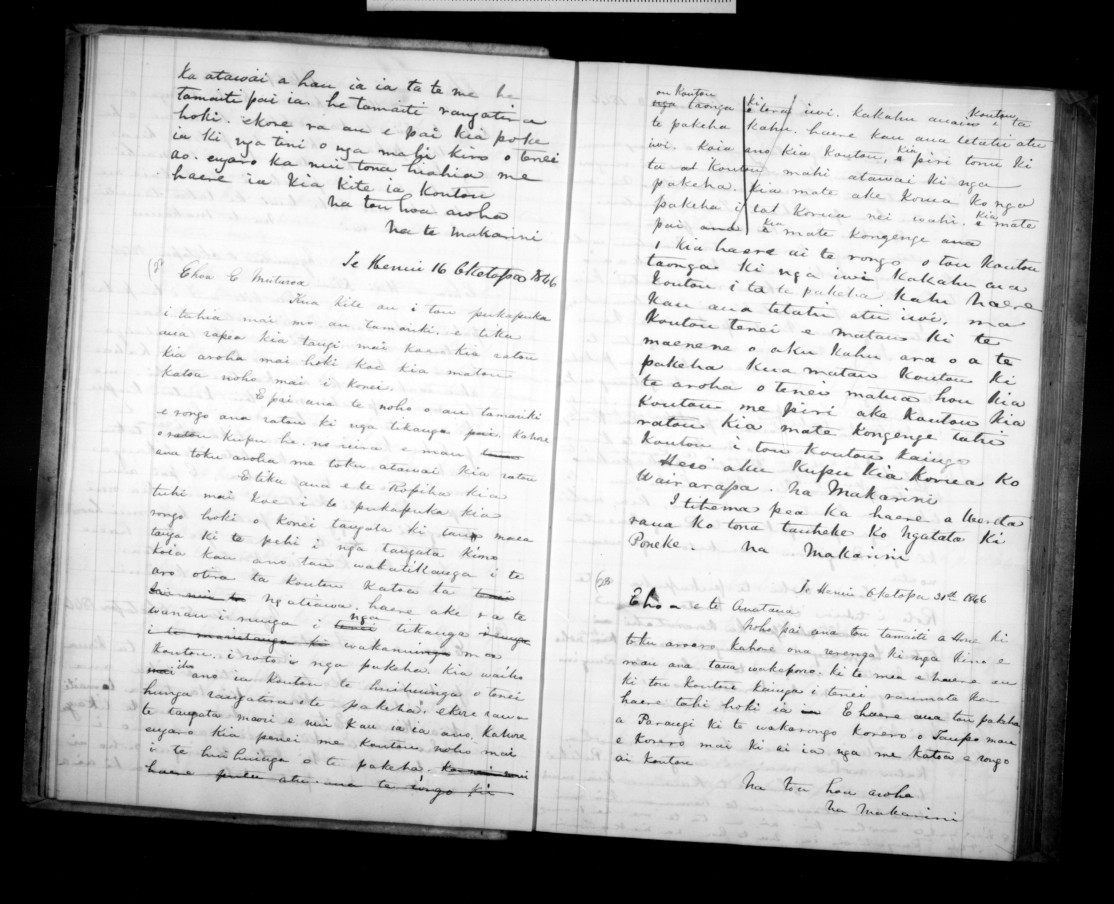 Ka atawai a hau ia ia ta te me he
tamaiti pai ia. he tamaiti rangatira
hoki. ekore ra au e pai kia poke
ia ki nga tini o nga mahi kino o tenei
ao. engaro ka nui tona hiahia me
haere ia kia kite ia koutou
na tou hoa aroha
Na te Makarini
Te Henui 16 Oketopa 1846
Ehoa E
Kua kite au i tau pukapuka
i tuhia mai mo au tamariki. e tika
ana tangi mai koe kia ratou
kia aroha mai hoki koe kia matou
katoa noho mai i konei
E pai ana te noho o au tamariki
e rongo ana ratou ki nga tikanga pai. kahore
o ratou kupu he. no reira e mau
ana toku aroha me toku atawai kia ratou
E tika ana e te Ropiha kia
tuhi mai koe i te pukapuka kia
rongo hoki o konei tangata ki tau
ki te pehi i nga tangata kino
koia kau ano tau wakatikanga i te
aro otira ta koutou katoa ta
Ngatiawa. haere ake ra te
wanau i runga i nga tikanga
wakanunga ma
koutou. i roto i nga pakeha. kia waiho
ano ia koutou te huihuinga o tenei
hunga rangatira i te pakeha. ekore rawa
te tangata maori e nui kau ia ia ano. kahore
engaro kia penei me koutou noho mai
i te huihuinga o te pakeha.
haere atu te rongo ki
ou koutou
taonga ki tera iwi. kakahu anaiw koutou i ta
te pakeha kahu. haere kau ana tetahi atu
iwi. koia ano kia koutou, kia piri tonu ki
ta koutou mahi atawai ki nga
pakeha. kia mate ake korua ko nga
pakeha i korua nei wahi. kia mate
pai kia mate kongenge ana
kia haere ai te rongo o tou koutou
taonga ki nga iwi kakahu ana
koutou i ta te pakeha kahu haere
kau ana tetahi atu iwi. ma
koutou tenei e matau ki te
maenene o aku kahu ara o a te
pakeha kua matau koutou ki
te aroha o tenei matua hou kia
koutou me piri ake koutou kia
ratou kia mate kongenge tahi
koutou i tou koutou kainga
Heio aku kupu kia korua ko
Wairarapa. Na Makarini
I tihema pea ka haere a
raua ko tona tauheke ko Ngatata ki
Poneke. Na Makarini
Te Henui Oketopa 31st 1846
Ehoa e te Awatana
Noho pai ana tou tamaiti a Hone ki
toku aroaro kahore ona rerenga ki nga kino e
mau ana taua wakapono. ki te mea e haere au
ki tou koutou kainga i tenei raumata ka
haere tahi hoki ia E haere ana tou pakeha
a Parangi ki te wakarongo korero o Taupo mau
e korero mai ki ai ia nga me katoa e rongo
ai koutou
Na tou hoa aroha
Na Makarini